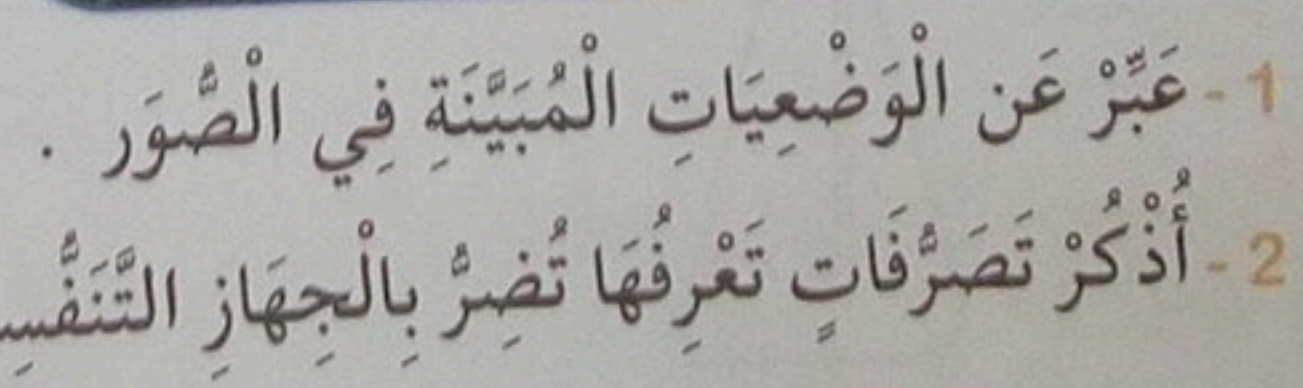 1 - عَبِّرْ عَن الْوَضْعِيَاتِ الْمُبَيَّنَةِ فِي الْصُّوَر .
2 - أُذْكُرْ تَصَرُّفَاتٍ تَعْرِفُهَا تُضِرُّ بِالْجِهَازِ التَّنَفُّسِ